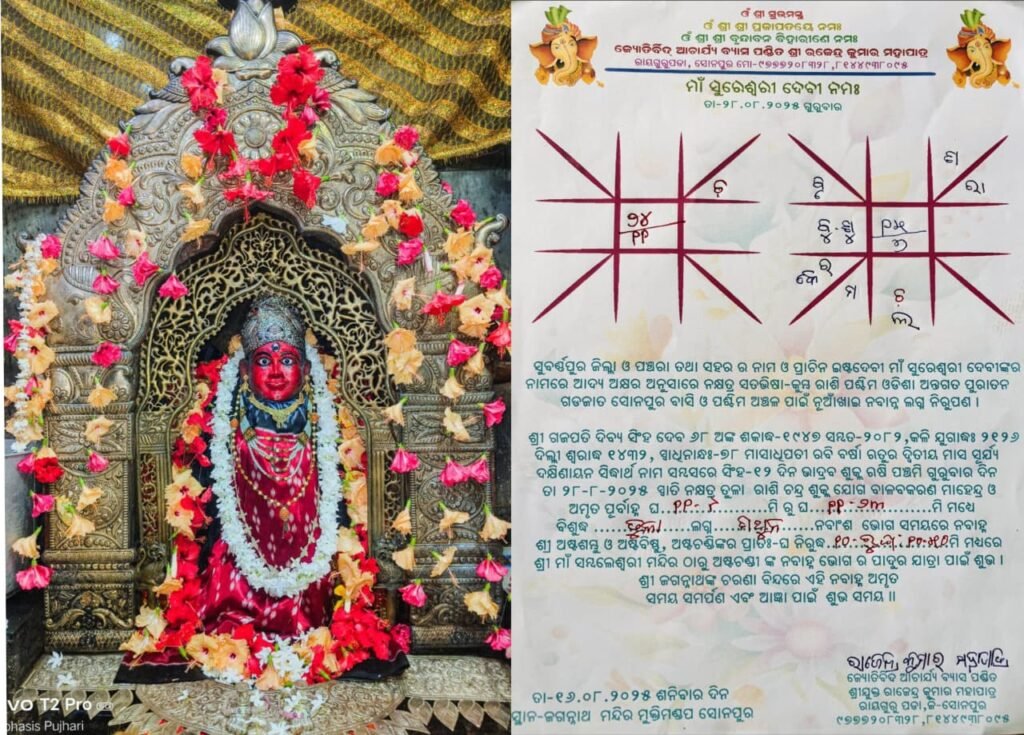 ଓଁ ଶ୍ରୀ ଗୁରବେ ନମଃ
ଓଁ ଶ୍ରୀ ଶ୍ରୀ ପ୍ରଜାପତୟେ ନମଃ
ଓଁ ଶ୍ରୀ ଶ୍ରୀ ବୃନ୍ଦାବନ ବିହାରୀଣେ ନମଃ
ଜ୍ୟୋତିର୍ବିଦ୍ ଆଚାର୍ଯ୍ୟ ବ୍ୟାସ ପଣ୍ଡିତ ଶ୍ରୀ ରାଜେନ୍ଦ୍ର କୁମାର ମହାପାତ୍ର
ରାୟଗୁରୁପଡା, ସୋନପୁର ମୋ-୯୭୭୭୨୦୮୩୨୮,୮୧୪୪୯୩୮୦୯୫
ମାଁ ସୁରେଶ୍ୱରୀ ଦେବୀ ନମଃ
ତା-୨୮.୦୮.୨୦୨୫ ଗୁରୁବାର
ସୁବର୍ଣ୍ଣପୁର ଜିଲ୍ଲା ଓ ପଞ୍ଚରା ତଥା ସହର ର ନାମ ଓ ପ୍ରାଚିନ ଇଷ୍ଟଦେବୀ ମାଁ ସୁରେଶ୍ୱରୀ ଦେବୀଙ୍କର
ନାମରେ ଆଦ୍ୟ ଅକ୍ଷର ଅନୁସାରେ ନକ୍ଷତ୍ର ସତଭିଷା-କୁମ୍ଭ ରାଶି ପଶ୍ଚିମ ଓଡିଶା ଅନ୍ତଗତ ପୁରାତନ
ଗଡଜାତ ସୋନପୁର ବାସି ଓ ପଶ୍ଚିମ ଅଞ୍ଚଳ ପାଇଁ ନୂଆଁଖାଇ ନବାନ୍ନ ଲଗ୍ନ ନିରୁପଣ ।
ଶ୍ରୀ ଗଜପତି ଦିବ୍ୟ ସିଂହ ଦେବ ୬୮ ଅଙ୍କ ଶକାବ୍ଦ-୧୯୪୭ ସମ୍ବତ-୨୦୮୨,କଳି ଯୁଗାବ୍ଦଃ ୨୧୨୬
ଦିଲ୍ଲୀ ଶ୍ୱରାବ୍ଦ ୧୪୩୨, ସ୍ୱାଧିନାବ୍ଦଃ-୭୮ ମାସାଧିପତୀ ରବି ବର୍ଷା ଋତୁର ଦ୍ୱିତୀୟ ମାସ ସୂର୍ଯ୍ୟ
ଦକ୍ଷିଣାୟନ ସିଦ୍ଧାର୍ଥ ନାମ ସମ୍ବସରେ ସିଂହ-୧୨ ଦିନ ଭାଦ୍ରବ ଶୁକ୍ଳ ଋଷି ପଞ୍ଚମି ଗୁରୁବାର ଦିନ
ତା ୨୮-୮-୨୦୨୫ ସ୍ୱାତି ନକ୍ଷତ୍ର ତୁଳା ରାଶି ଚନ୍ଦ୍ର ଶୁକ୍ଳ ଯୋଗ ବାଳବକରଣ ମାହେନ୍ଦ୍ର ଓ
ଅମୃତ ପୂର୍ବାହ୍ନ ଘ... ମି ରୁ ଘ... ମି ମଧ୍ୟେ
ବିଶୁଦ୍ଧ ...ତୁଳା... ଲଗ୍ନ ...ମିଥୁନ... ନବାଂଶ ଭୋଗ ସମୟରେ ନବାନ୍ନ
ଶ୍ରୀ ଅଷ୍ଟଶମ୍ଭୁ ଓ ଅଷ୍ଟବିଷ୍ଣୁ, ଅଷ୍ଟଚଣ୍ଡିଙ୍କର ପ୍ରାତିଃ-ଘ ମି ମଧ୍ୟରେ
ଶ୍ରୀ ମାଁ ସମଲେଶ୍ୱରୀ ମନ୍ଦିର ଠାରୁ ଅଷ୍ଟଚଣ୍ଡୀ ଙ୍କ ନବାନ୍ନ ଭୋଗ ର ଯାତ୍ରା ପାଇଁ ଶୁଭ ।
ଶ୍ରୀ ଜଗନ୍ନାଥଙ୍କ ଚରଣା ବିନ୍ଦରେ ଏହି ନବାନ୍ନ ଅମୃତ
ସମୟ ସମର୍ପଣ ଏବଂ ଆଜ୍ଞା ପାଇଁ ଶୁଭ ସମୟ ॥
ରାଜେନ୍ଦ୍ର କୁମାର ମହାପାତ୍ର
ଜ୍ୟୋତିର୍ବିଦ ଆଚାର୍ଯ୍ୟ ବ୍ୟାସ ପଣ୍ଡିତ
ଶ୍ରୀଯୁକ୍ତ ରାଜେନ୍ଦ୍ର କୁମାର ମହାପାତ୍ର
ରାୟଗୁରୁ ପଡା, ଜି-ସୋନପୁର
୯୭୭୭୨୦୮୩୨୮,୮୧୪୪୯୩୮୦୯୫
ତା-୧୬.୦୮.୨୦୨୫ ଶନିବାର ଦିନ
ସ୍ଥାନ-ଜଗନ୍ନାଥ ମନ୍ଦିର ମୁକ୍ତିମଣ୍ଡପ ସୋନପୁର
VO T2 Pro
ohasis Pujhari